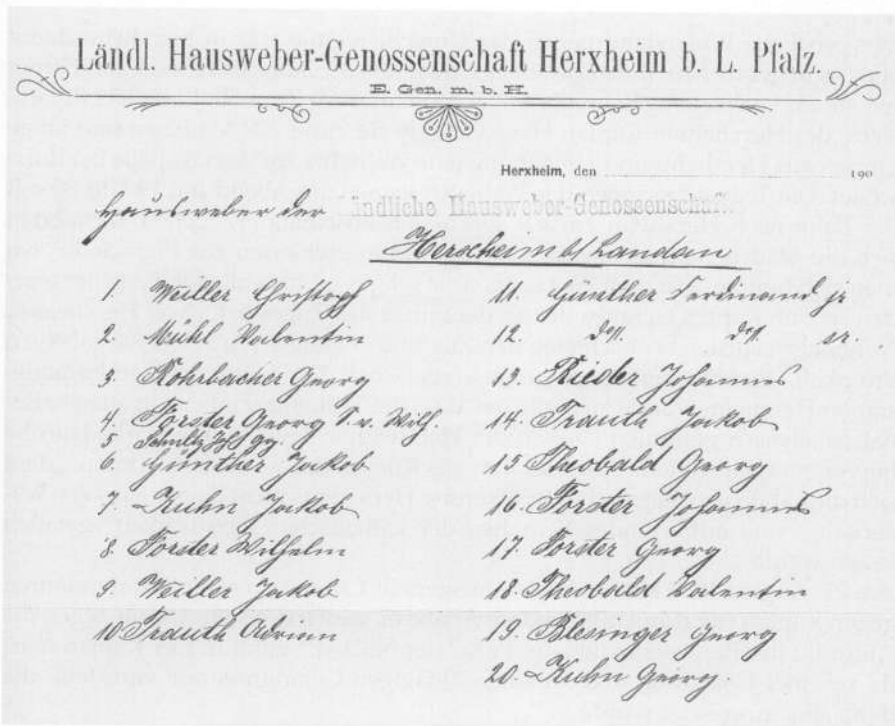 Ländl. Hausweber-Genossenschaft Herxheim b. L. Pfalz.
E. Gen. m. b. H.
Herxheim, den 190
Hausweber der ändliche Hausweber-Genossenschaft
Herxheim b/ Landau
1. Weiller Christoph
2. Mühl Valentin
3. Rohrbacher Georg
4. Forster Georg S. v. Wilh.
5 Joh. Gg.
6. Günther Jakob
7. Kuhn Jakob
8. Forster Wilhelm
9. Weiller Jakob
10 Trauth Adrian
11. Günther Ferdinand jr
12. dto dto sr.
13. Rieder Johannes
14. Trauth Jakob
15 Theobald Georg
16. Forster Johannes
17. Forster Georg
18. Theobald Valentin
19. Blesinger Georg
20. Kuhn Georg.